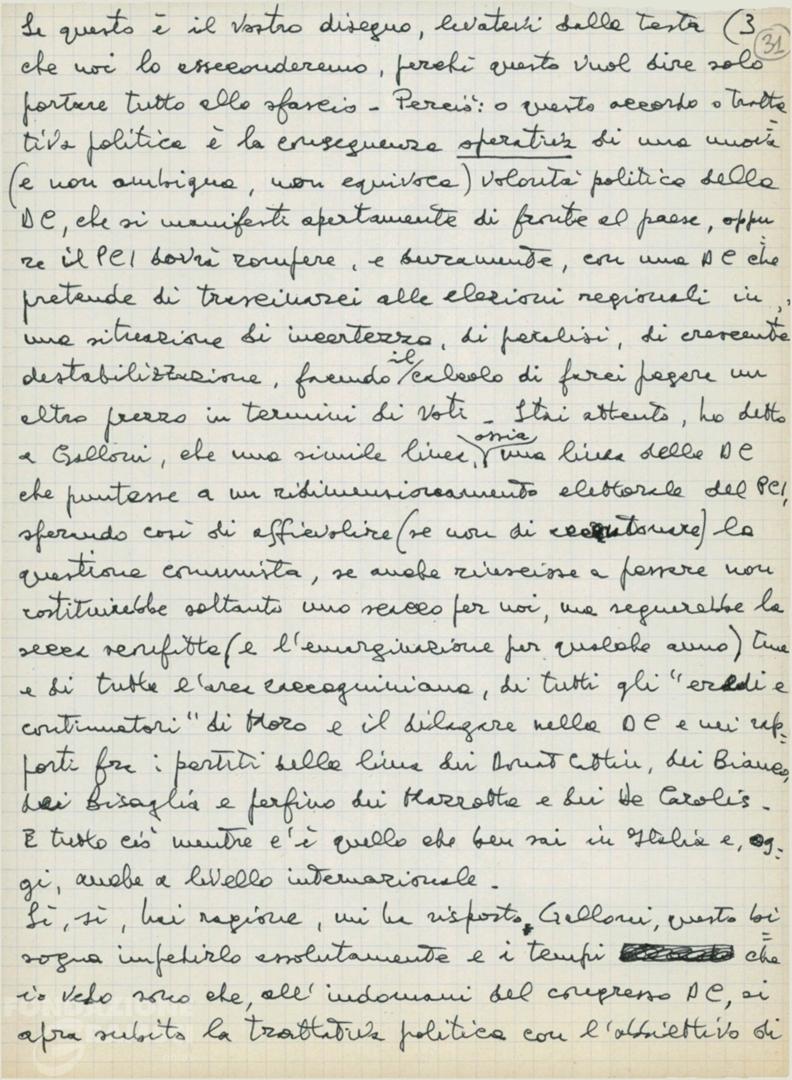 Se questo è il vostro disegno, levatevi dalla testa (3
31
che noi lo asseconderemo, perché questo vuol dire solo
portare tutto allo sfascio - Perciò: o questo accordo o tratta=
tiva politica è la conseguenza operativa di una nuova
(e non ambigua, non equivoca) volontà politica della
DC, che si manifesti apertamente di fronte al paese, oppu=
re il PCI dovrà rompere, e duramente, con una DC che
pretende di trascinarci alle elezioni regionali in
una situazione di incertezza, di paralisi, di crescente
destabilizzazione, facendo il calcolo di farci pagare un
altro prezzo in termini di voti - Stai attento, ho detto
a Galloni, che una simile linea, ossia una linea della DC
che puntasse a un ridimensionamento elettorale del PCI,
sperando così di affievolire (se non di accantonare) la
questione comunista, se anche riuscisse a passare non
costituirebbe soltanto uno scacco per noi, ma segnerebbe la
secca sconfitta (e l'emarginazione per qualche anno) tua
e di tutta l'area zaccagniniana, di tutti gli "eredi e
continuatori" di Moro e il dilagare nella DC e nei rap=
porti fra i partiti della linea dei Donat Cattin, dei Bianco,
dei Bisaglia e perfino dei Mazzotta e dei De Carolis -
E tutto ciò mentre c'è quello che ben sai in Italia e, og=
gi, anche a livello internazionale -
Sì, sì, hai ragione, mi ha risposto Galloni, questo bi=
sogna impedirlo assolutamente e i tempi che
io vedo sono che, all'indomani del congresso DC, si
apra subito la trattativa politica con l'obbiettivo di
FONDAZIONE